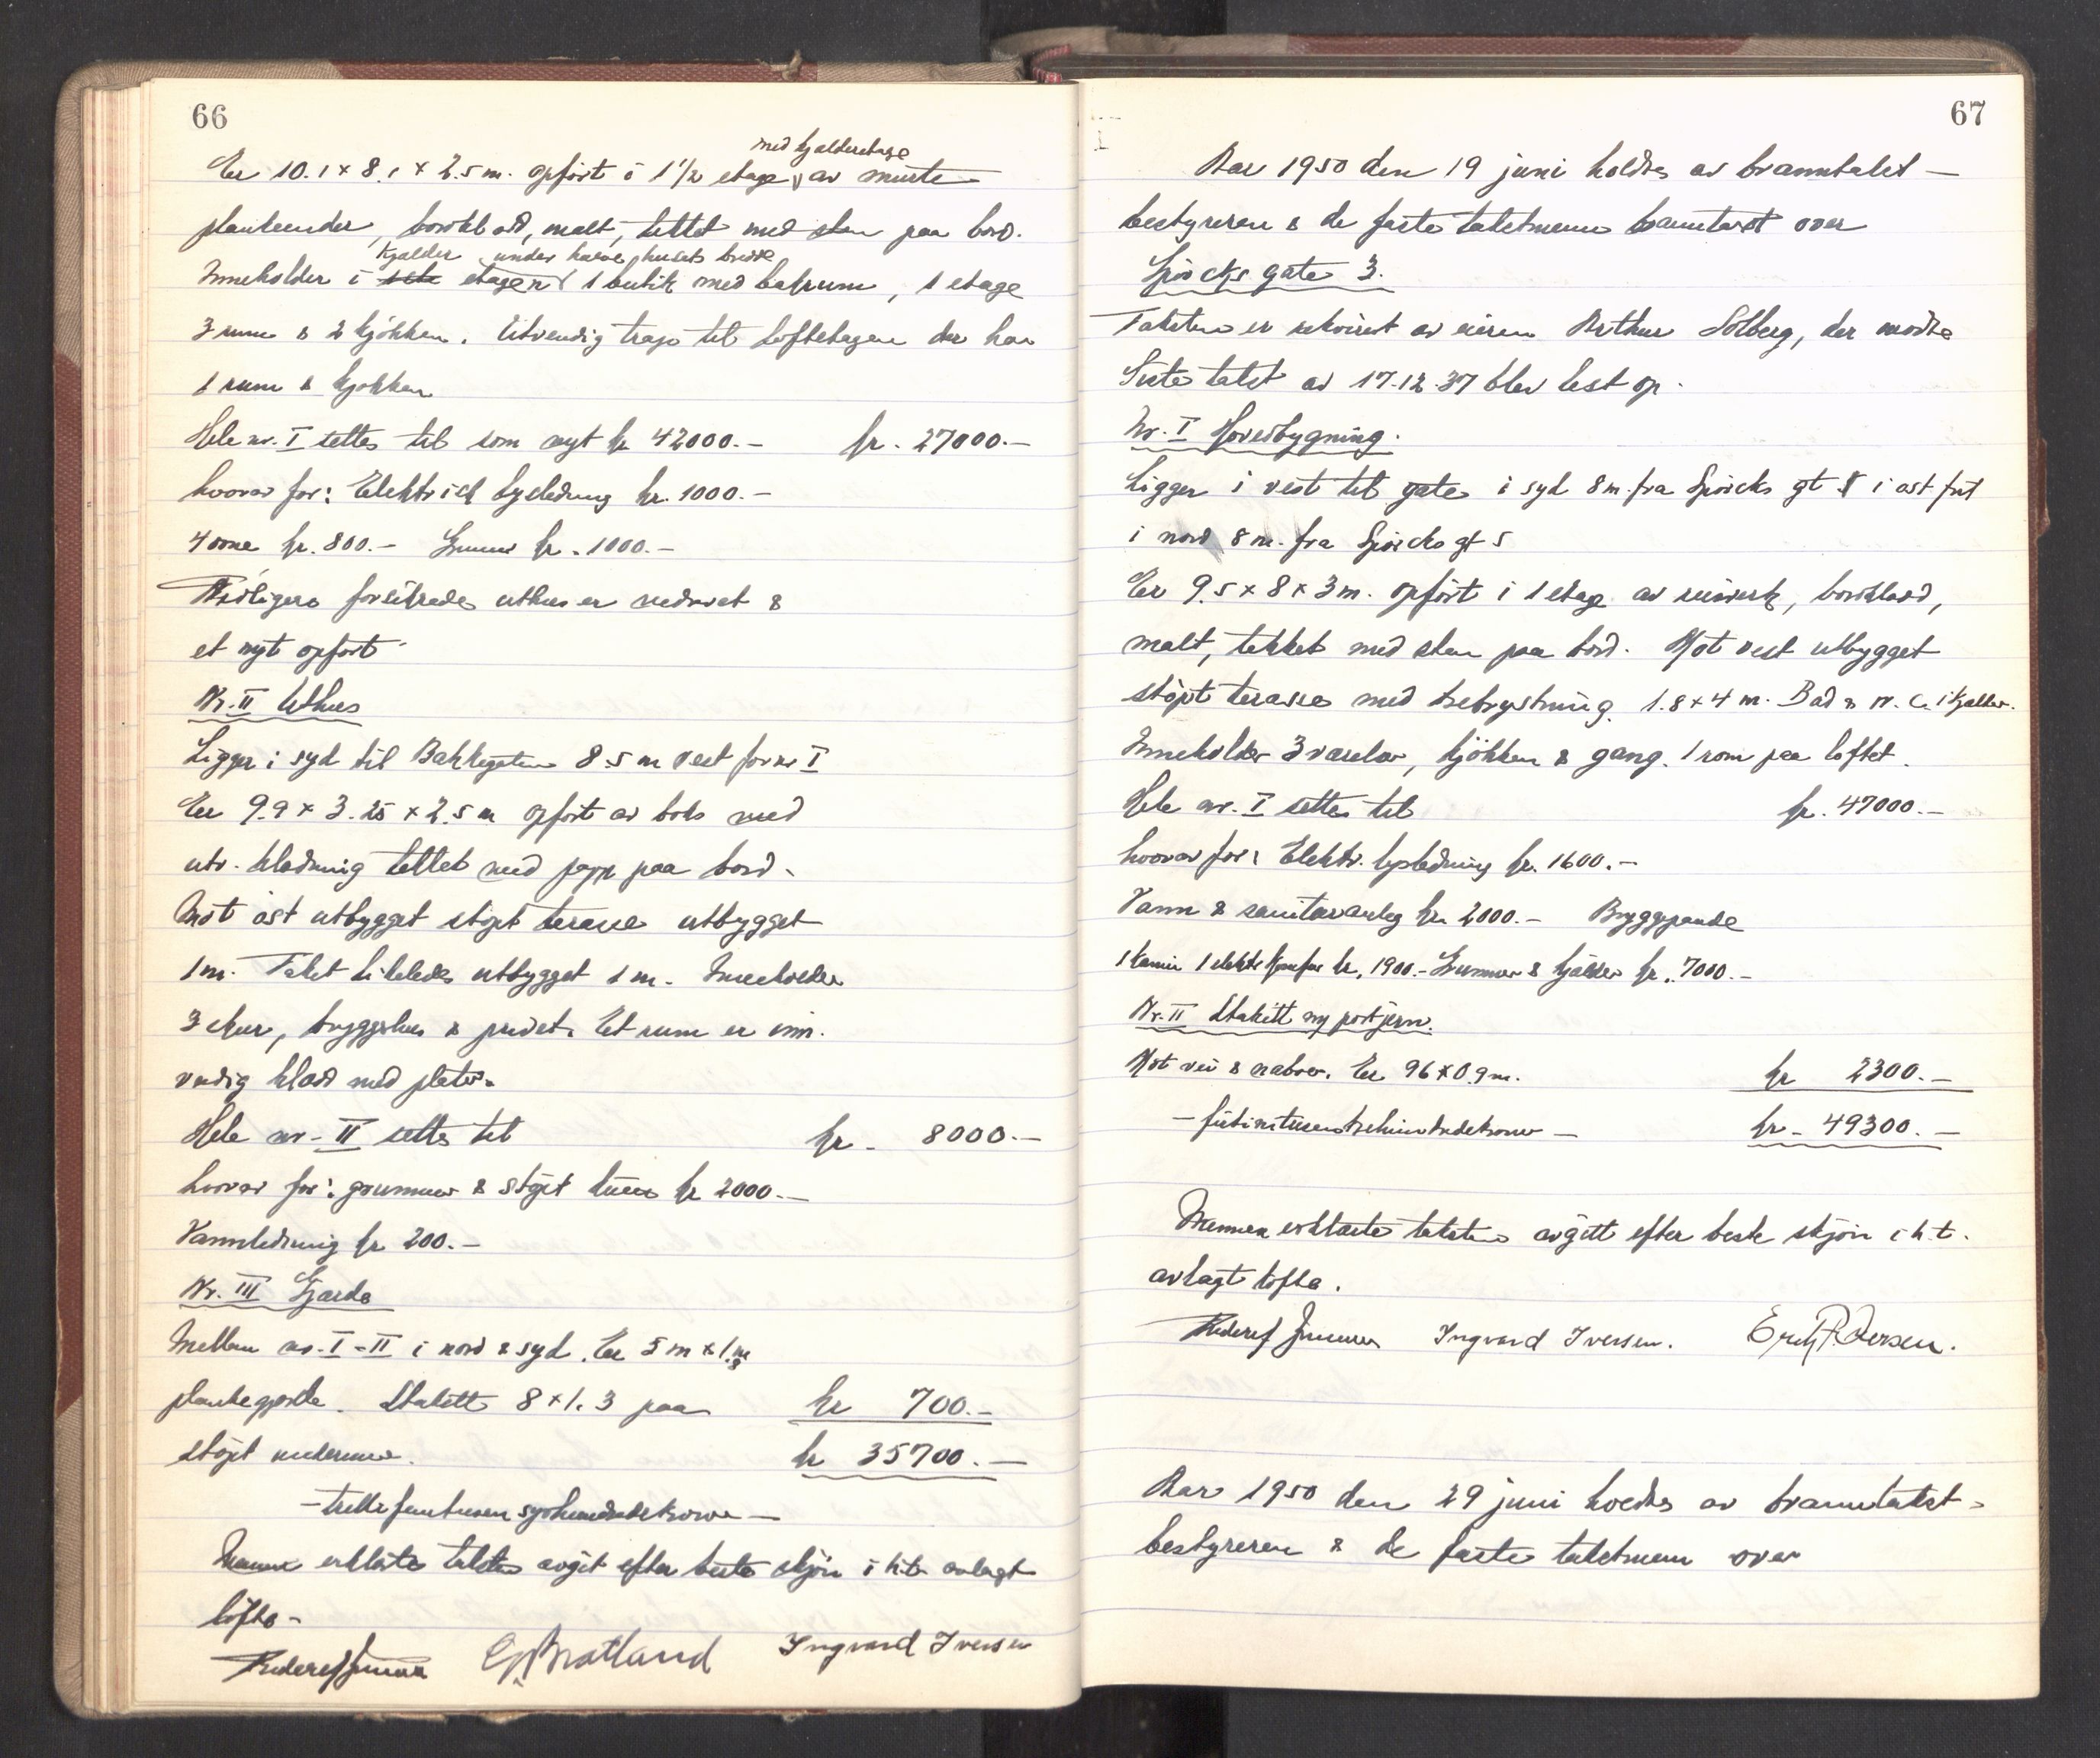 66
med kjelderetage
Er 10.1 x 8.1 x 2.5 m. opført i 1 1/2 etage av murte
plankeender, bordklæd, malt, tekket med sten paa bord.
Kjelder under halve husets bredde
Inneholder i etagen 1 butik med bakrum, 1 etage
3 rum & 2 kjøkken. Utvendig trapp til loftetagen der har
1 rum & kjøkken
Hele nr. I settes til som nyt kr 42000.- kr. 27000.-
hvorav for: Elektrisk lysledning kr. 1000.-
4 ovne kr. 800.- Grunnmur kr. 1000.-
Tidligere forsikrede uthus er nedrevet &
et nyt opført
Nr. II Uthus
Ligger i syd til Bakkegaten 8.5 m vest for nr I
Er 9.9 x 3.25 x 2.5 m opført av boks med
utv. kledning tekket med papp paa bord.
Mot øst utbygget støpt terasse utbygget
1 m. Taket likeledes utbygget 1 m. Inneholder
3 skur, bryggerhus & privet. Et rum er inn-
vendig klædd med plater.
Hele nr. II settes til kr. 8000.-
hvorav for: grunnmur & støpt kr 2000.-
Vannledning kr 200.-
Nr. III Gjerde
Mellem nr. I - II i nord & syd. Er 5 m x 1.8 m
plankegjerde. Stakitt 8 x 1.3 paa kr 700.-
støpt undermur. kr 35700.-
- trettifemtusensyvhundredekroner -
Mennene erklærte taksten avgit efter beste skjøn i h.t. avlagt
løfte -
Ingvard Iversen
67
Aar 1950 den 19 juni holdtes av branntakst-
bestyreren & de faste takstmenn branntakst over
Spörcks gate 3.
Taksten er rekvirert av eieren Arthur Solberg, der møtte
Siste takst av 17-12-37 blev lest op.
Nr. I Hovedbygning.
Ligger i vest til gate i syd 8 m. fra Spörcks gt 1 i øst frit
i nord 8 m. fra Spörcks gt 5
Er 9.5 x 8 x 3 m. opført i 1 etage av reisverk, bordklædd,
malt, tekket med sten paa bord. Mot vest utbygget
støpt terasse med trebrystning 1.8 x 4 m. Bad & W.C. i kjelder.
Inneholder 3 værelser, kjøkken & gang. 1 rom paa loftet.
Hele nr. I settes til kr. 47000.-
hvorav for: Elektr. lysledning kr. 1600.-
Vann & sanitæranlæg kr. 2000.- Bryggepande
1 kamin 1 elektr komfur kr. 1900.- Grunnmur & kjelder kr. 7000.-
Nr. II Stakitt og port jern.
Mot vei & naboer. Er 96 x 0.9 m. kr 2300.-
- førtinitusentrehundredekroner - kr. 49300.-
Mennene erklærte taksten avgitt efter beste skjøn i h.t.
avlagt løfte.
Ingvard Iversen.
Aar 1950 den 29 juni holdtes av branntakst-
bestyreren & de faste takstmenn over